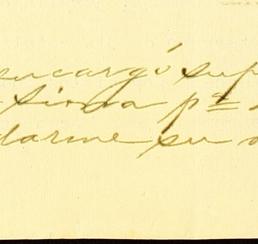 encargó sup
sirva pª
darme su